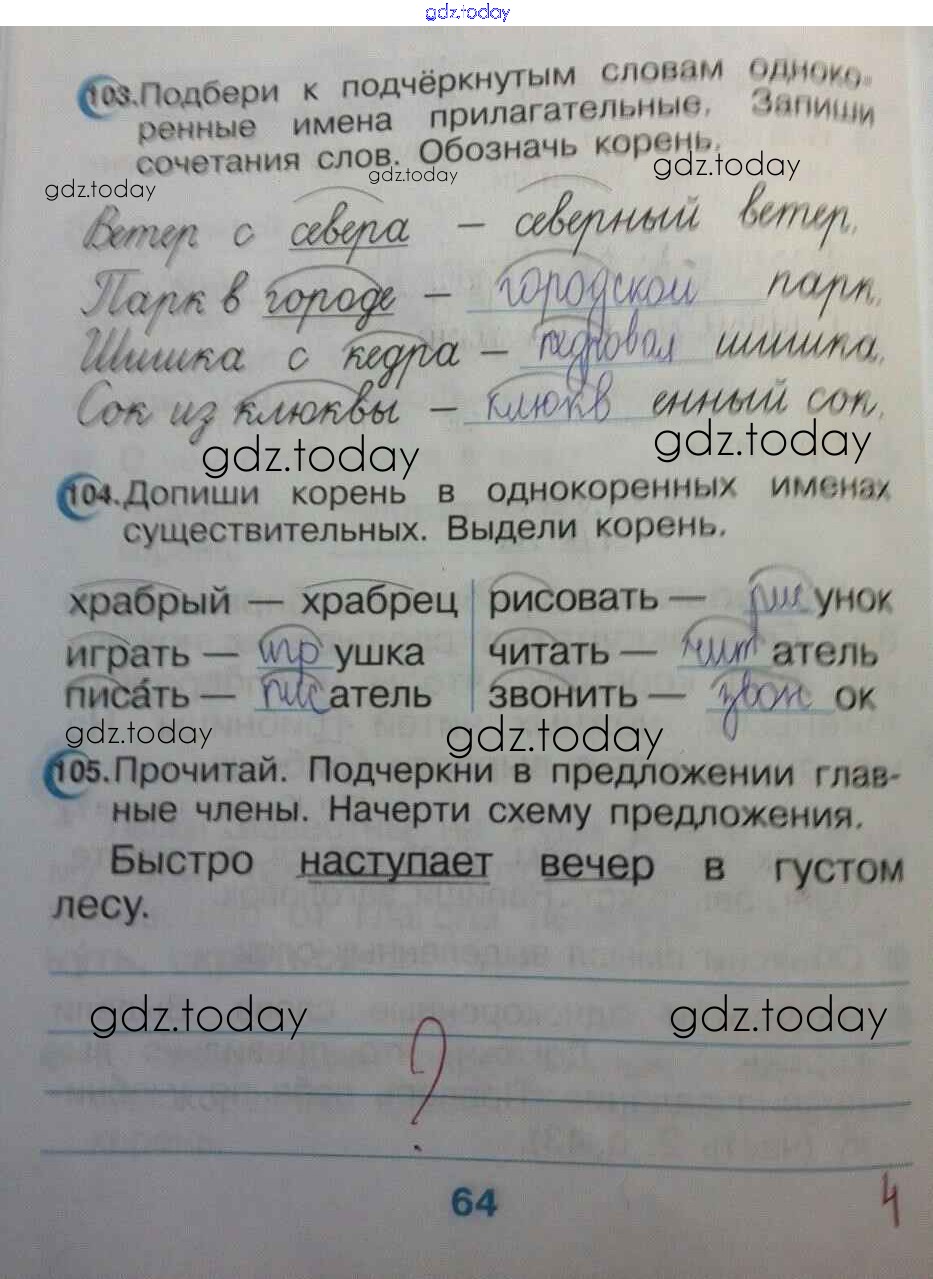 gdz.today
103.Подбери к подчёркнутым словам одноко-
ренные имена прилагательные. Запиши
сочетания слов. Обозначь корень.
gdz.today gdz.today gdz.today
Ветер с севера – северный ветер.
Парк в городе – городской парк.
Шишка с кедра – кедровая шишка.
Сок из клюквы – клюкв енный сок.
gdz.today gdz.today
104.Допиши корень в однокоренных именах
существительных. Выдели корень.
храбрый — храбрец рисовать — рисунок
играть — игр ушка читать — чит атель
писа́ть — писатель звонить — звон ок
gdz.today gdz.today
105.Прочитай. Подчеркни в предложении глав-
ные члены. Начерти схему предложения.
Быстро наступает вечер в густом
лесу.
gdz.today gdz.today
?
64
4